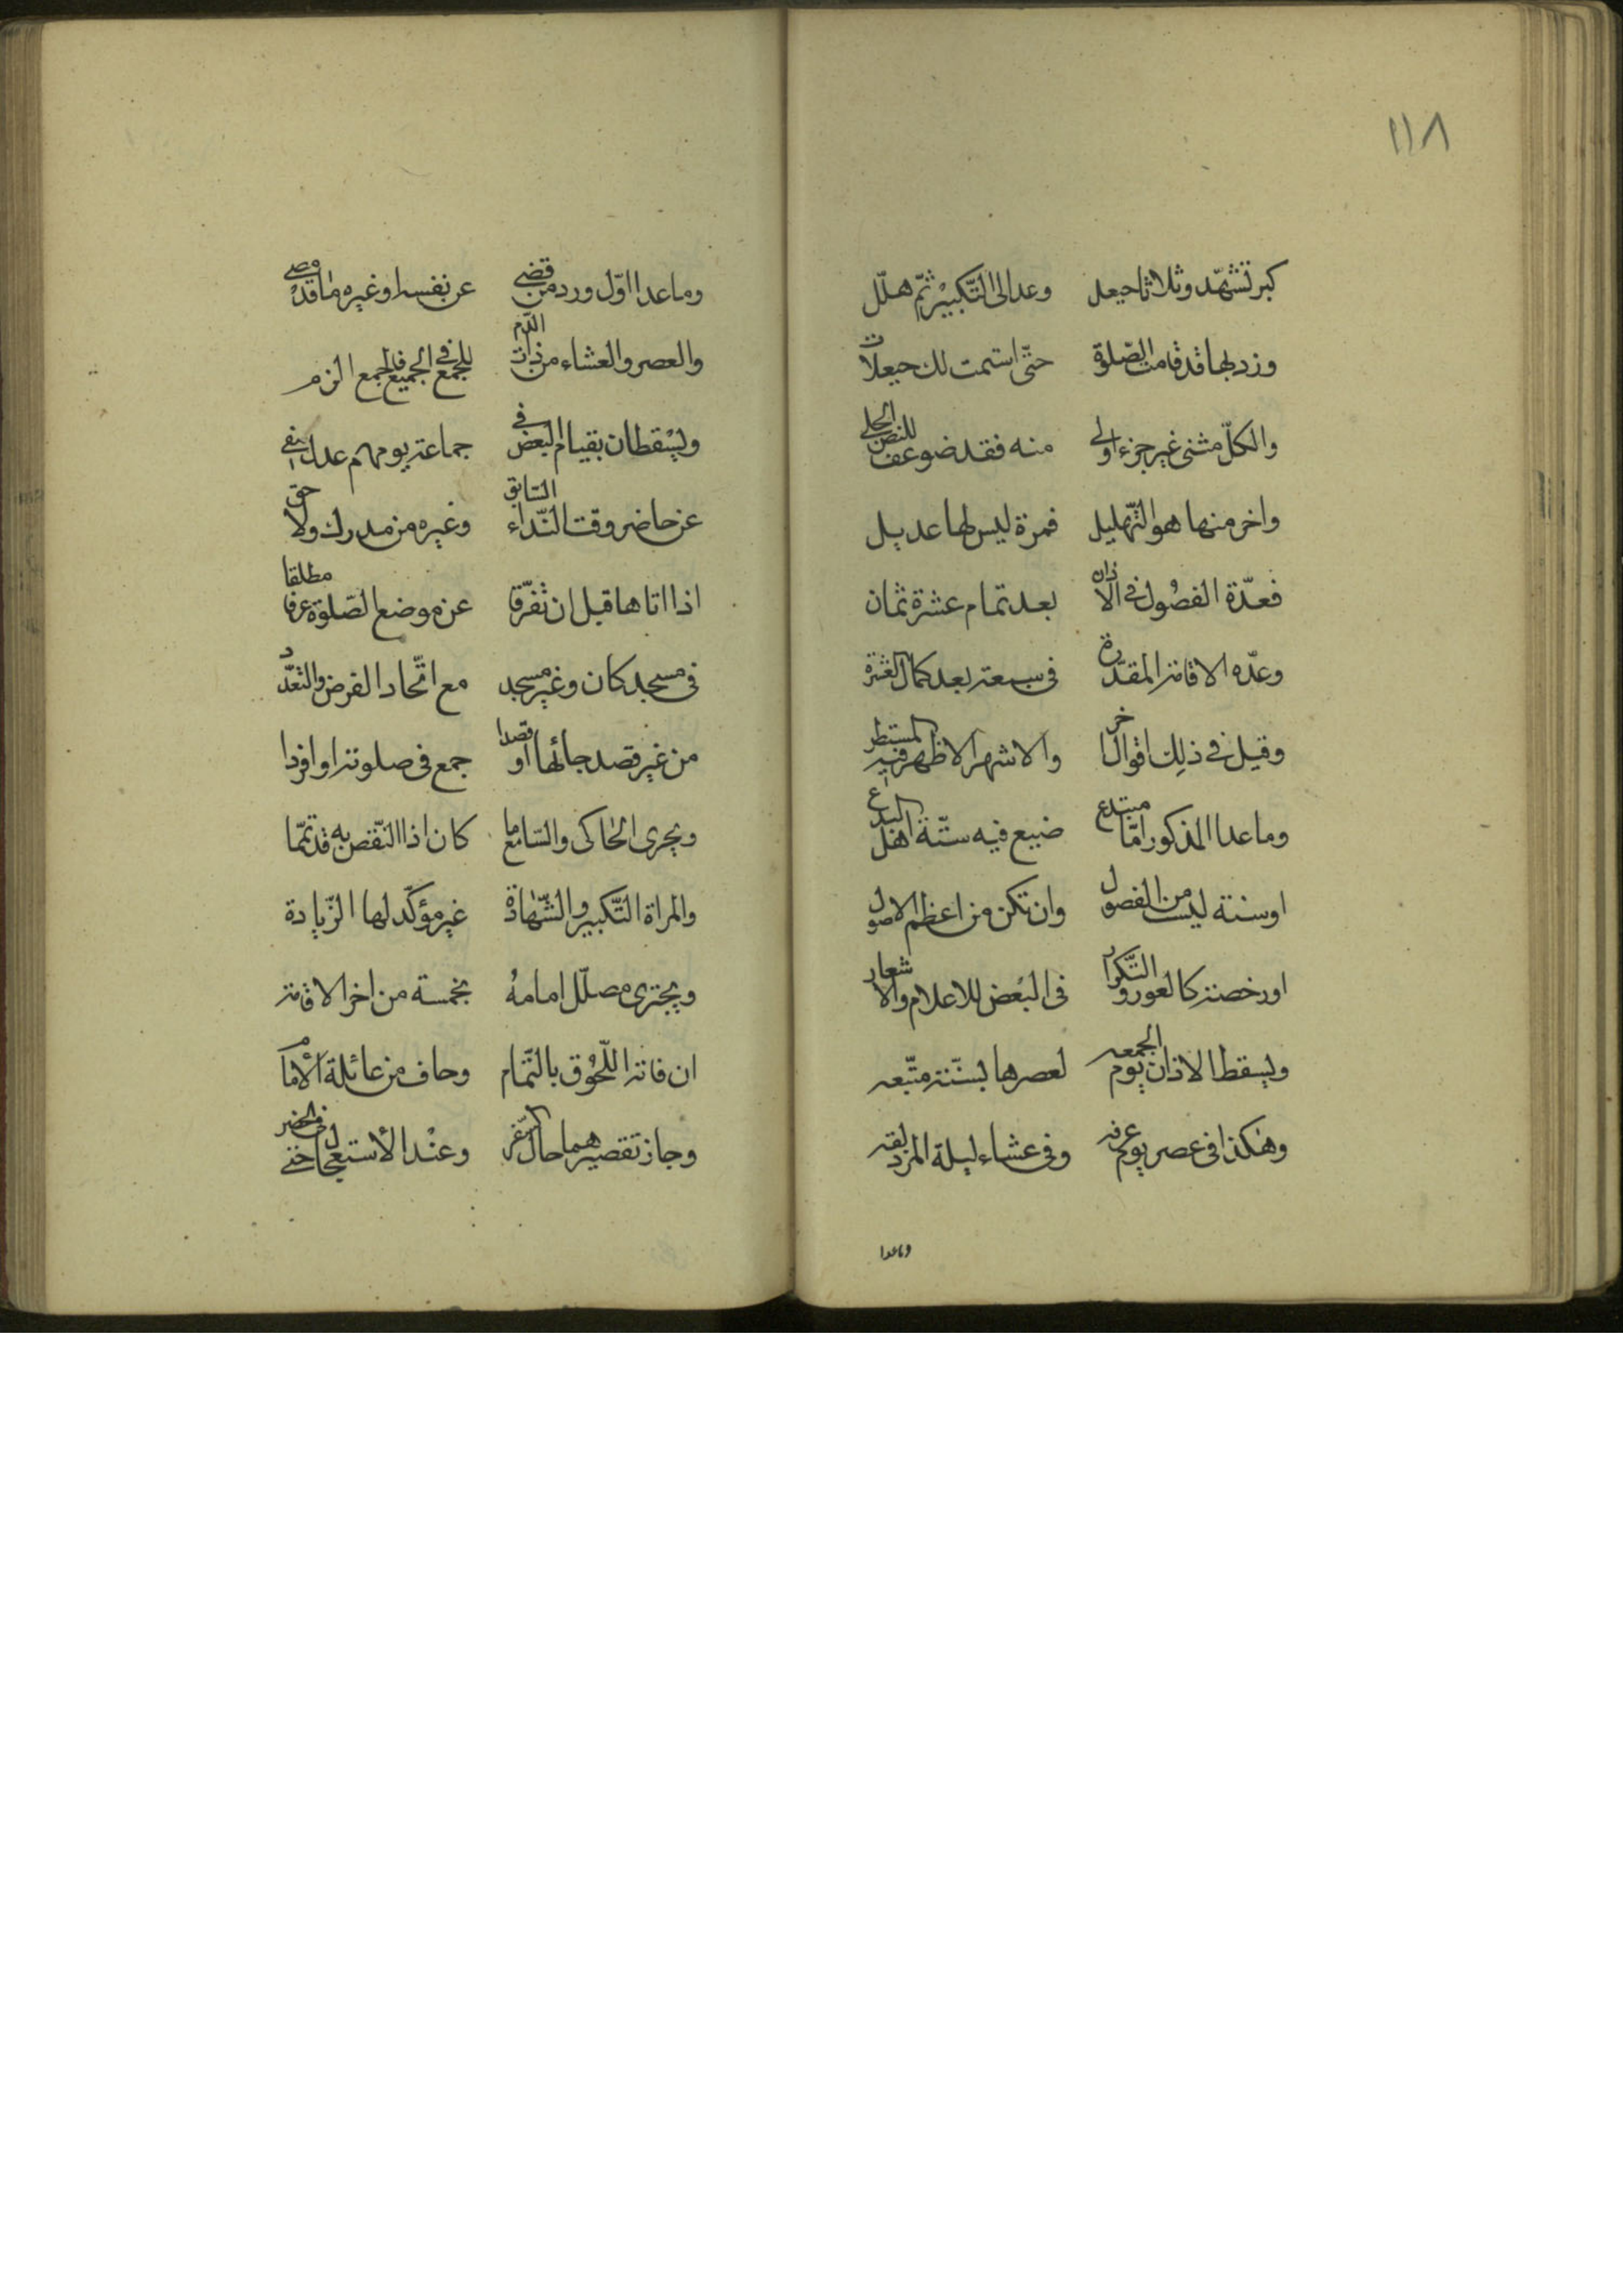 ١١٨
كبر تشهّد وثلاثا حيعل وعد الى التّكبير ثمّ هلّل
وزد لها قد قامت الصّلوة حتّى استمت لك حيعلات
والكلّ مثنى غير جزء اولى منه فقد ضوعف للنص الجلي
واخر منها هو التّهليل فمرة ليس لها عديل
فعدّة الفصول فى الاذان بعد تمام عشرة ثمان
وعدّه الاقامة المقدّرة فى سبعة بعد كمال العشرة
وقيل فى ذلك اقوال اخر والاشهر الاظهر فيه المستطر
وما عدا المذكور امّا مبتدع ضيع فيه سنّة اهل البدع
او سنته ليست من الفصول وان تكن من اعظم الاصول
او رخصة كالعور والتّكرار فى البعض للاعلام والاشعار
ويسقط الاذان يوم الجمعه لعصرها بسنّة متّبعه
وهكذا فى عصر يوم عرفه وفى عشاء ليلة المزدلفه
وماعدا
وما عدا اوّل ورد من قضى عن نفسه او غيره ما قد مضى
والعصر والعشاء من ذات الدّم للجمع فى الجميع فالجمع الزم
ويسقطان بقيام البعض فى جماعة يومهم عدل
عن حاضر وقت النّداء السّابق وغيره من مدرك ولاحق
اذا اتاها قبل ان تفرّقا عن موضع الصّلوة عرفا مطلقا
فى مسجد كان وغير مسجد مع اتّحاد الفرض والتعدّد
من غير قصد جائها او قصدا جمع فى صلوته او افردا
ويجرى الحاكى والسّامع ما كان اذا النّقص به قد تمّما
والمراة التّكبير والشّهادة غير مؤكّد لها الزّيادة
ويجترى مصلّ امامه بخمسة من اخر الاقامة
ان فاته اللّحوق بالتّمام وخاف من عائلة الأمام
وجاز تقصيرهما حال السّفر وعند الأستعجال فى الحضر